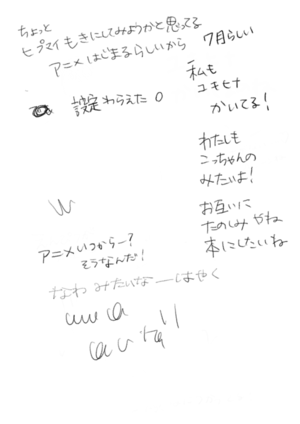 ちょっと
ヒプマイもきにしてみようかと思ってる
アニメはじまるらしいから
7月らしい
設定わらえた○
私も
ユキヒナ
かいてる!
わたしも
こっちゃんの
みたいよ!
お互いに
たのしみやね
本にしたいね
アニメいつからー?
そうなんだ!
なわみたいなーはやく